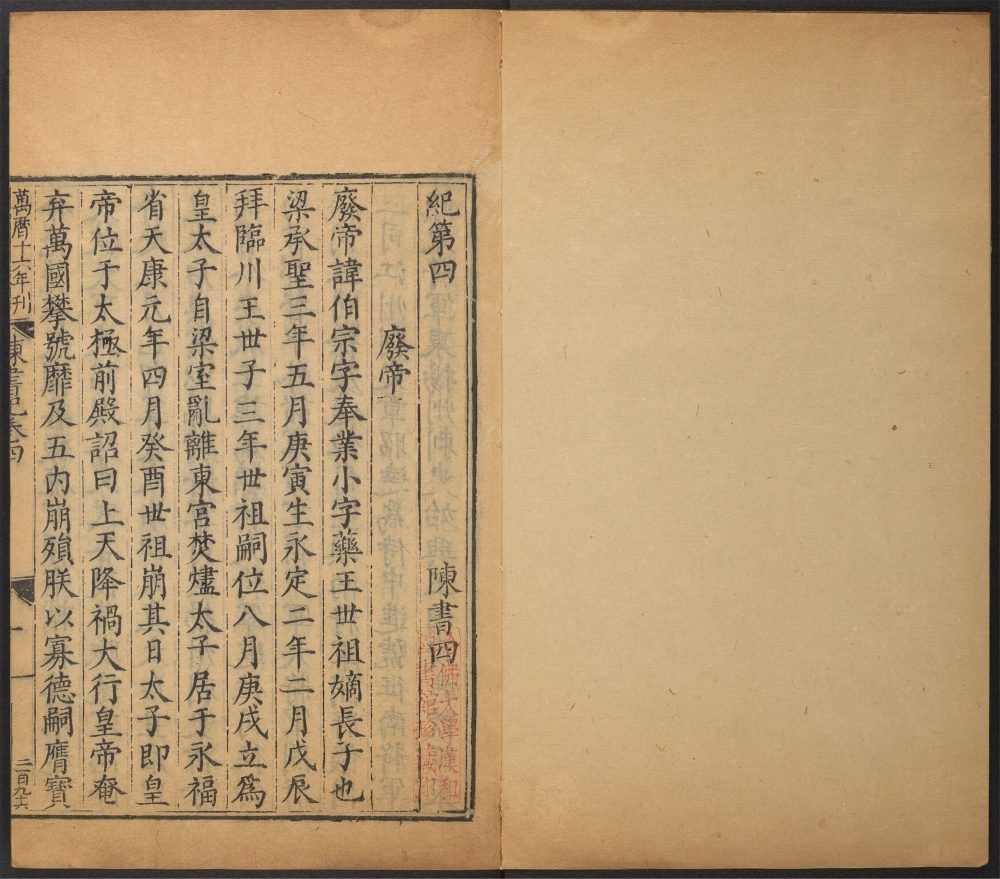 紀第四　陳書四
廢帝
廢帝諱伯宗字奉業小字藥王世祖嫡長子也
梁承聖三年五月庚寅生永定二年二月戊辰
拜臨川王世子三年世祖嗣位八月庚戌立爲
皇太子自梁室亂離東宮焚燼太子居于永福
省天康元年四月癸酉世祖崩其日太子即皇
帝位于太極前殿詔曰上天降禍大行皇帝奄
弃萬國攀號靡及五内崩殞朕以寡德嗣膺寶
萬曆十六年刊
陳書紀卷四
一
三百九十六